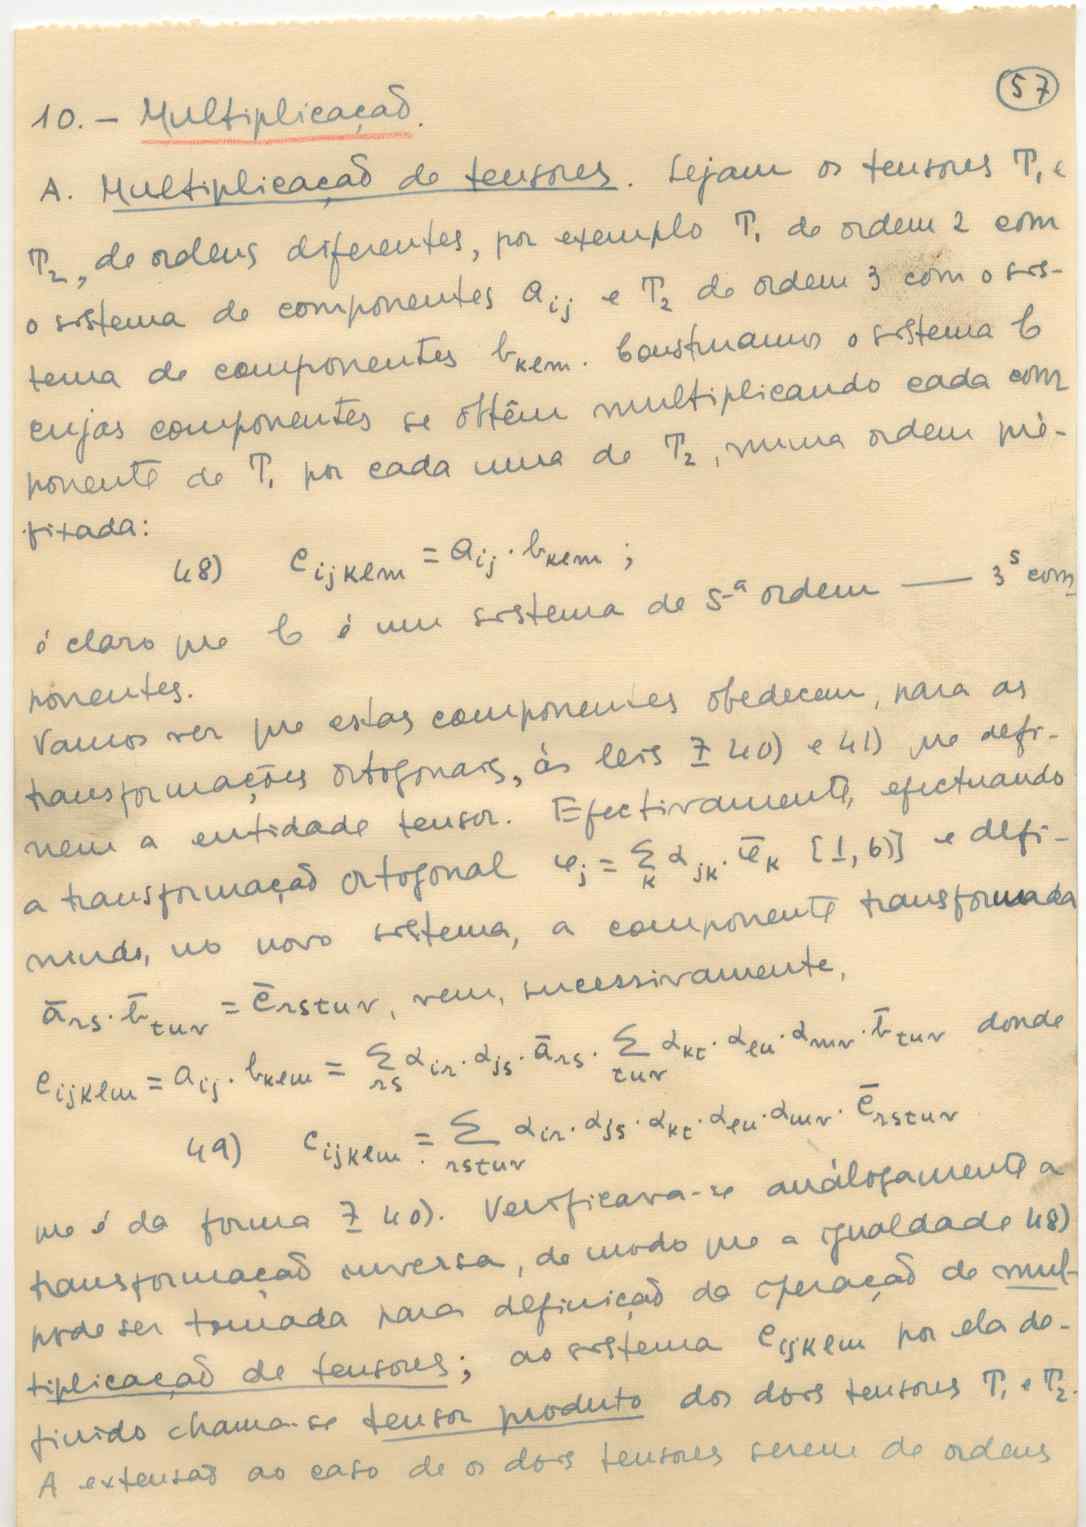 57
10. — Multiplicação.
A. Multiplicação de tensores. Sejam os tensores T₁ e
T₂, de ordens diferentes, por exemplo T₁ de ordem 2 com
o sistema de componentes a_ij e T₂ de ordem 3 com o sis-
tema de componentes b_klm. Construamos o sistema C
cujas componentes se obtêm multiplicando cada com
ponente de T₁ por cada uma de T₂, numa ordem pré-
fixada:
48) c_ijklm = a_ij · b_klm ;
é claro que C é um sistema de 5-ª ordem — 3⁵ com
ponentes.
Vamos ver que estas componentes obedecem, para as
transformações ortogonais, às leis 7 40) e 41) que defi-
nem a entidade tensor. Efectivamente, efectuando
a transformação ortogonal e_j = Σ_k α_jk · ē_k [1, 6)] e defi-
nindo, no novo sistema, a componente transformada
ā_rs · b̄_tuv = c̄_rstuv, vem, sucessivamente,
c_ijklm = a_ij · b_klm = Σ_rs α_ir · α_js · ā_rs · Σ_tuv α_kt · α_lu · α_mv · b̄_tuv donde
49) c_ijklm = Σ_rstuv α_ir · α_js · α_kt · α_lu · α_mv · c̄_rstuv
que é da forma 7 40). Verificava-se anàlogamente a
transformação inversa, de modo que a igualdade 48)
pode ser tomada para definição da operação de mul-
tiplicação de tensores; ao sistema c_ijklm por ela de-
finido chama-se tensor produto dos dois tensores T₁ e T₂.
A extensão ao caso de os dois tensores serem de ordens